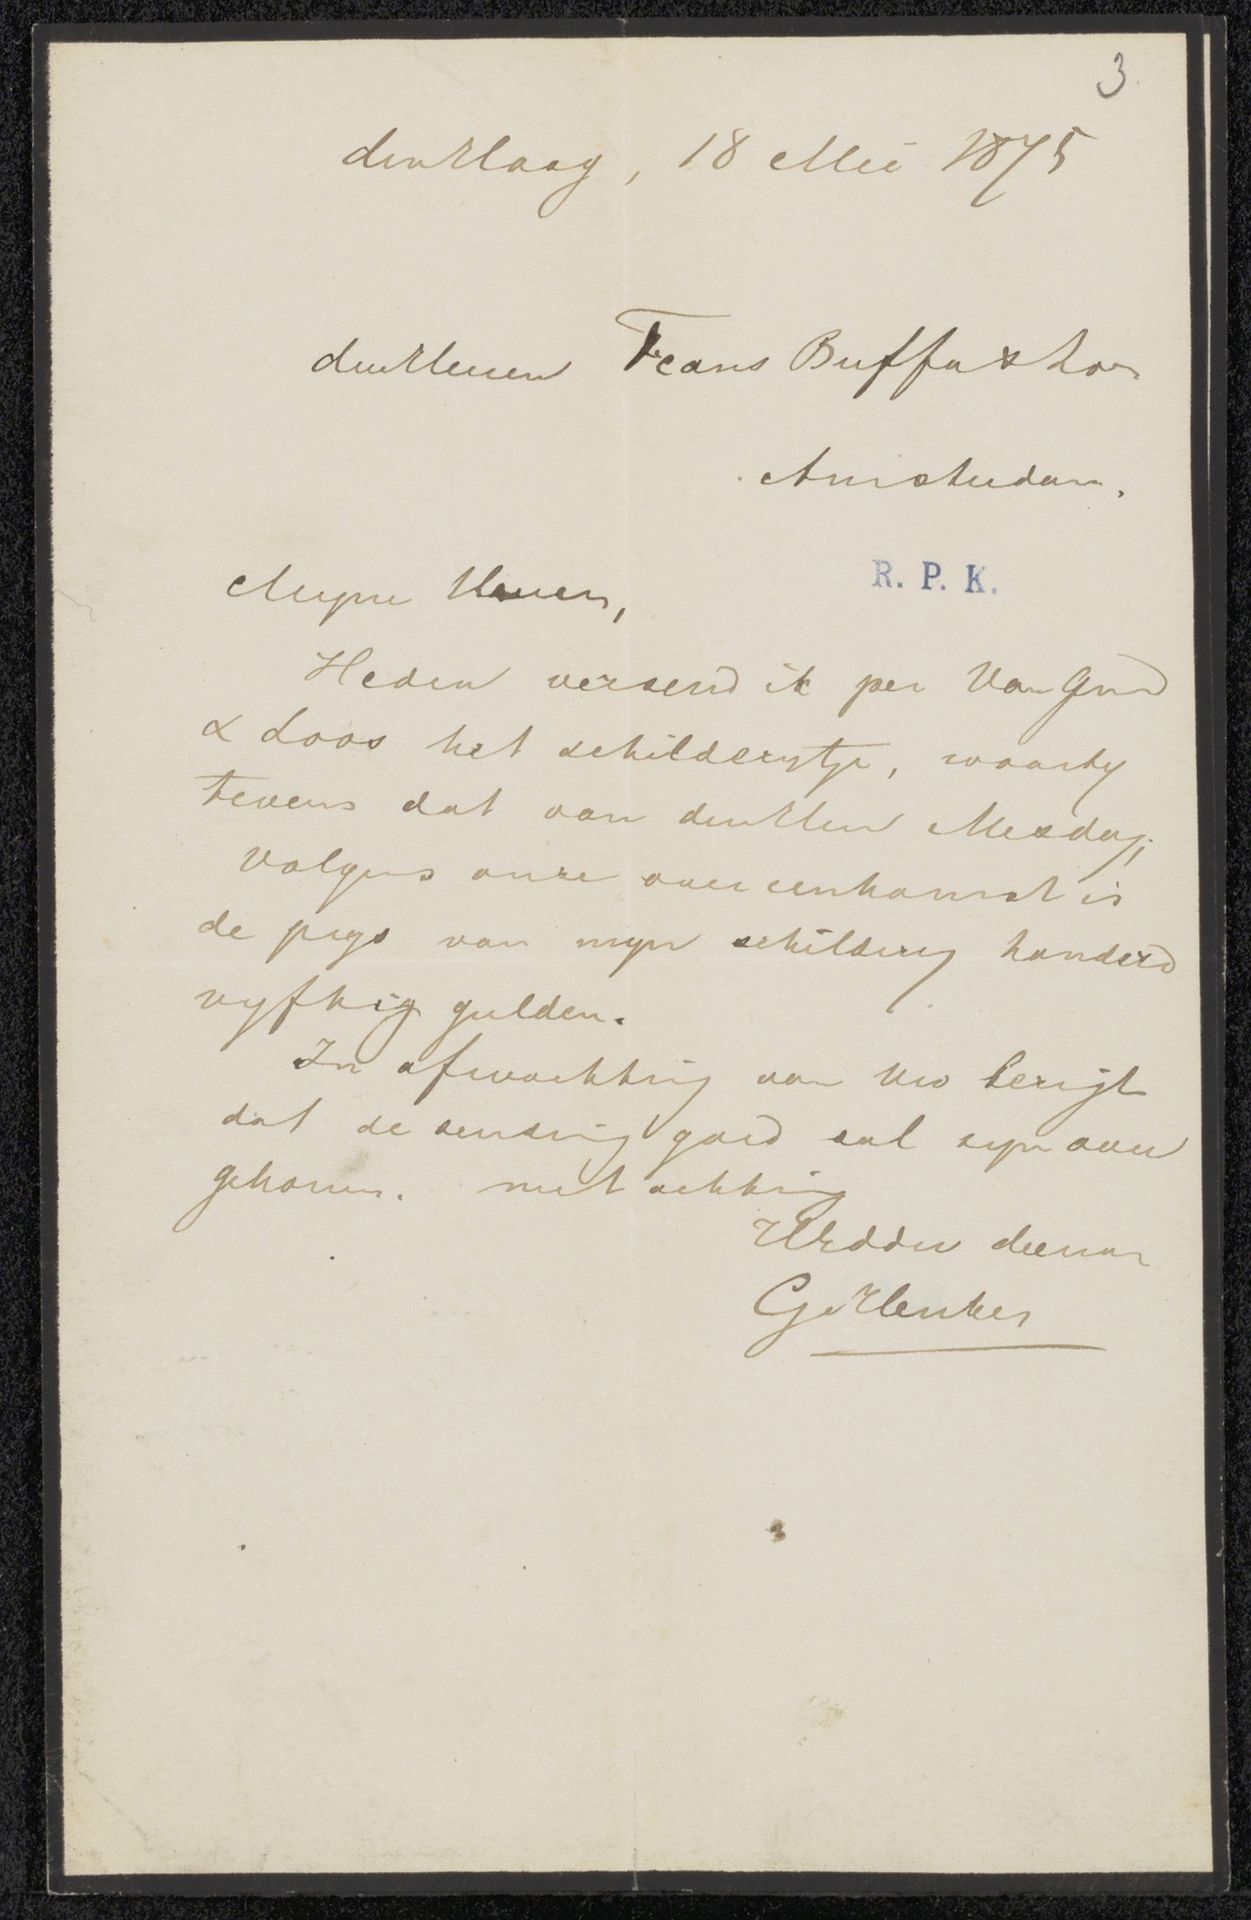 3.
den Haag, 18 Mei 1875
den Heeren Frans Buffa & Zoon
Amsterdam.
R. P. K.
Myne Heeren,
Heden versend ik per Van Gend
& Loos het schilderytje, waarby
tevens dat van den Heer Mesdag;
Volgens onze overeenkomst is
de prys van myn schildery honderd
vyftig gulden.
In afwachting van Uw berigt
dat de zending goed zal zyn over
gekomen. met achting
UEd dw dienaar
G. Henkes